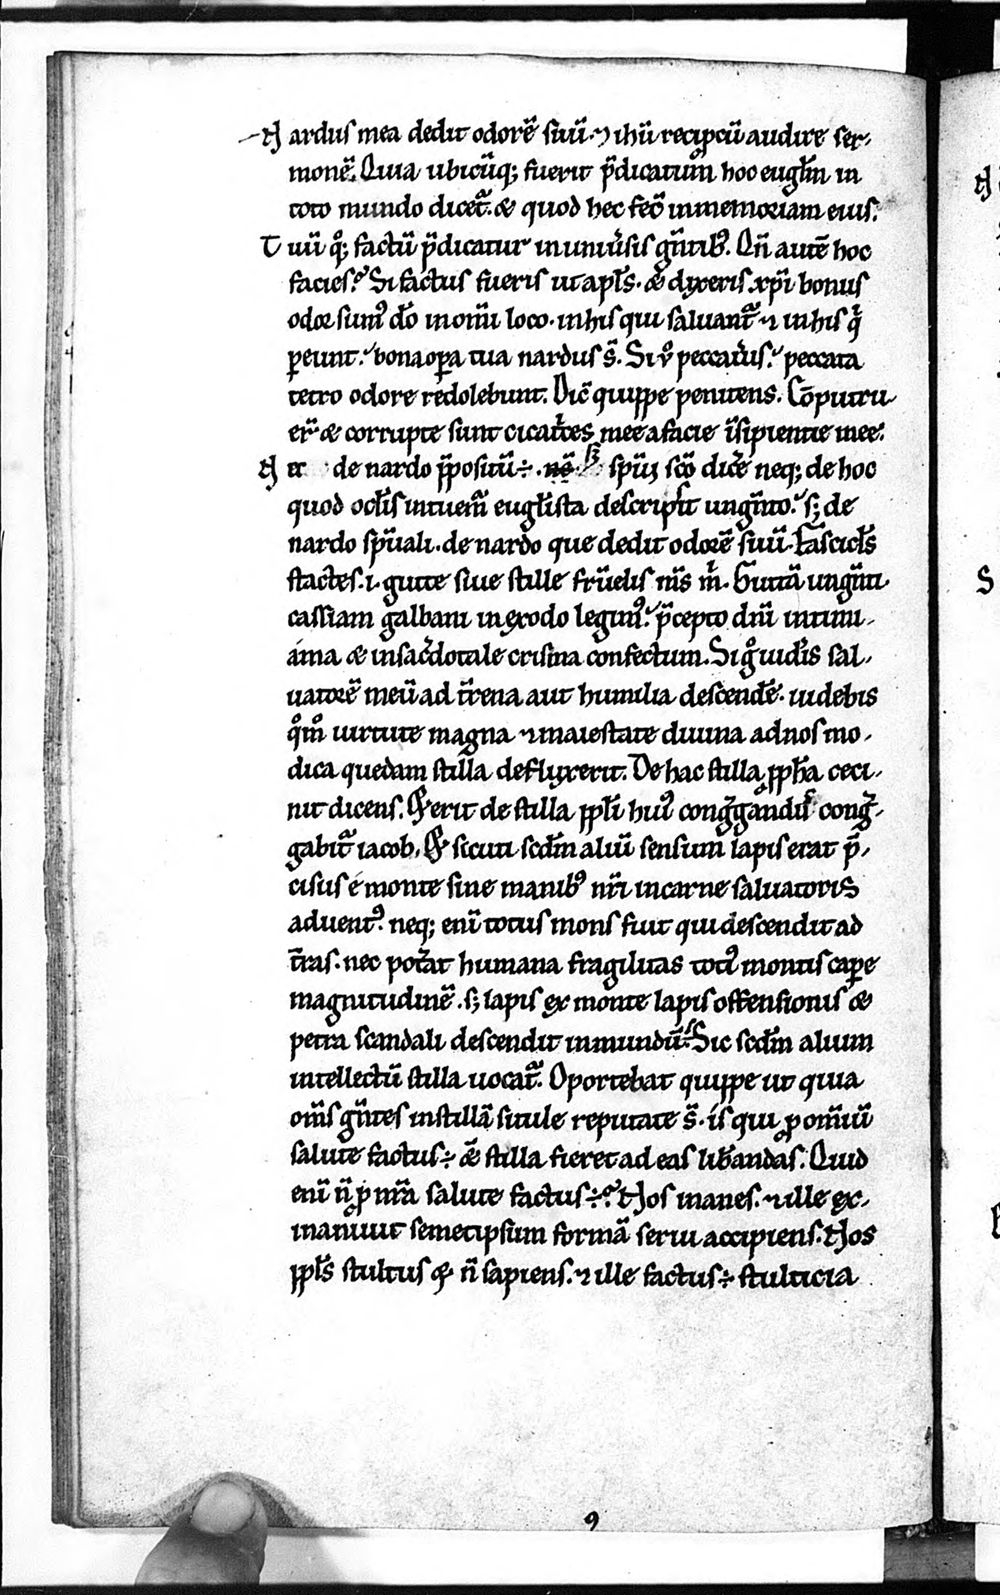 N ardus mea dedit odorē suū. ⁊ ihū recipiā audire ser-
monē. Quia ubicūq; fuerit p̄dicatum hoc eugl̄m in
toto mundo dicet᷑. & quod hec fec̄ in memoriam eius.
T uū q̊; factū p̄dicatur in uniu̾sis gn̄tibꝰ. Qn̄ autē hoc
facies? Si factus fueris ut apl̄s. & dixeris. xp̄i bonus
odor sumꝰ dō in om̄i loco. in his qui saluant᷑ ⁊ in his q̇
ꝑeunt. bona oꝑa tua nardus s̄. Si v̊ peccaueris. peccata
tetro odore redolebunt. Dic̄ quippe penitens. Cōputru-
er̄ & corrupte sunt cicatͥces mee a facie īsipientie mee.
N er de nardo ꝓpositū ÷. nē. sꝫ spūꝫ scō dic̄e neq; de hoc
quod ocl̄is intuem᷑ eugl̄ista descripsit ungn̄to. sꝫ de
nardo spūali. de nardo que dedit odorē suū. Fascicl̄s
stactes. i. gutte siue stille fr̄uelis m̄s m̊. Guttā ungn̄ti
cassiam galbani in exodo legimꝰ. p̄cepto dn̄i intimi-
ama & in sac̾dotale crisma confectum. Si g̊ uid̾is sal-
uatorē meū ad t̄rena aut humilia descendē. uidebis
q̊m̊ uirtute magna ⁊ maiestate diuina ad nos mo-
dica quedam stilla defluxerit. De hac stilla ꝓph̄a ceci-
nit dicens. Et erit de stilla ppl̄i huiꝰ cong̾gandꝰ cong̾-
gabit᷑ iacob. Et sicuti scd̄m aliū sensum lapis erat p̄-
cisus e monte sine manibꝰ nr̄i in carne saluatoris
aduentꝰ. neq; eni totus mons fuit qui descendit ad
t̄ras. nec pot̾at humana fragilitas totiꝰ montis caꝑe
magnitudinē. sꝫ lapis ex monte lapis offensionis &
petra scandali descendit in mundū. Sic scd̄m alium
intellectū stilla uocat᷑. Oportebat quippe ut quia
om̄s gn̄tes in stillā situle reputate s̄. is qui ꝓ om̄iū
salute factus ÷ & stilla fieret ad eas lib̾andas. Quid
eni n̄ ꝓ nr̄a salute factus ÷? Nos inanes. ⁊ ille ex-
inaniuit semetipsum formā serui accipiens. Nos
ppl̄s stultus & n̄ sapiens. ⁊ ille factus ÷ stulticia
9